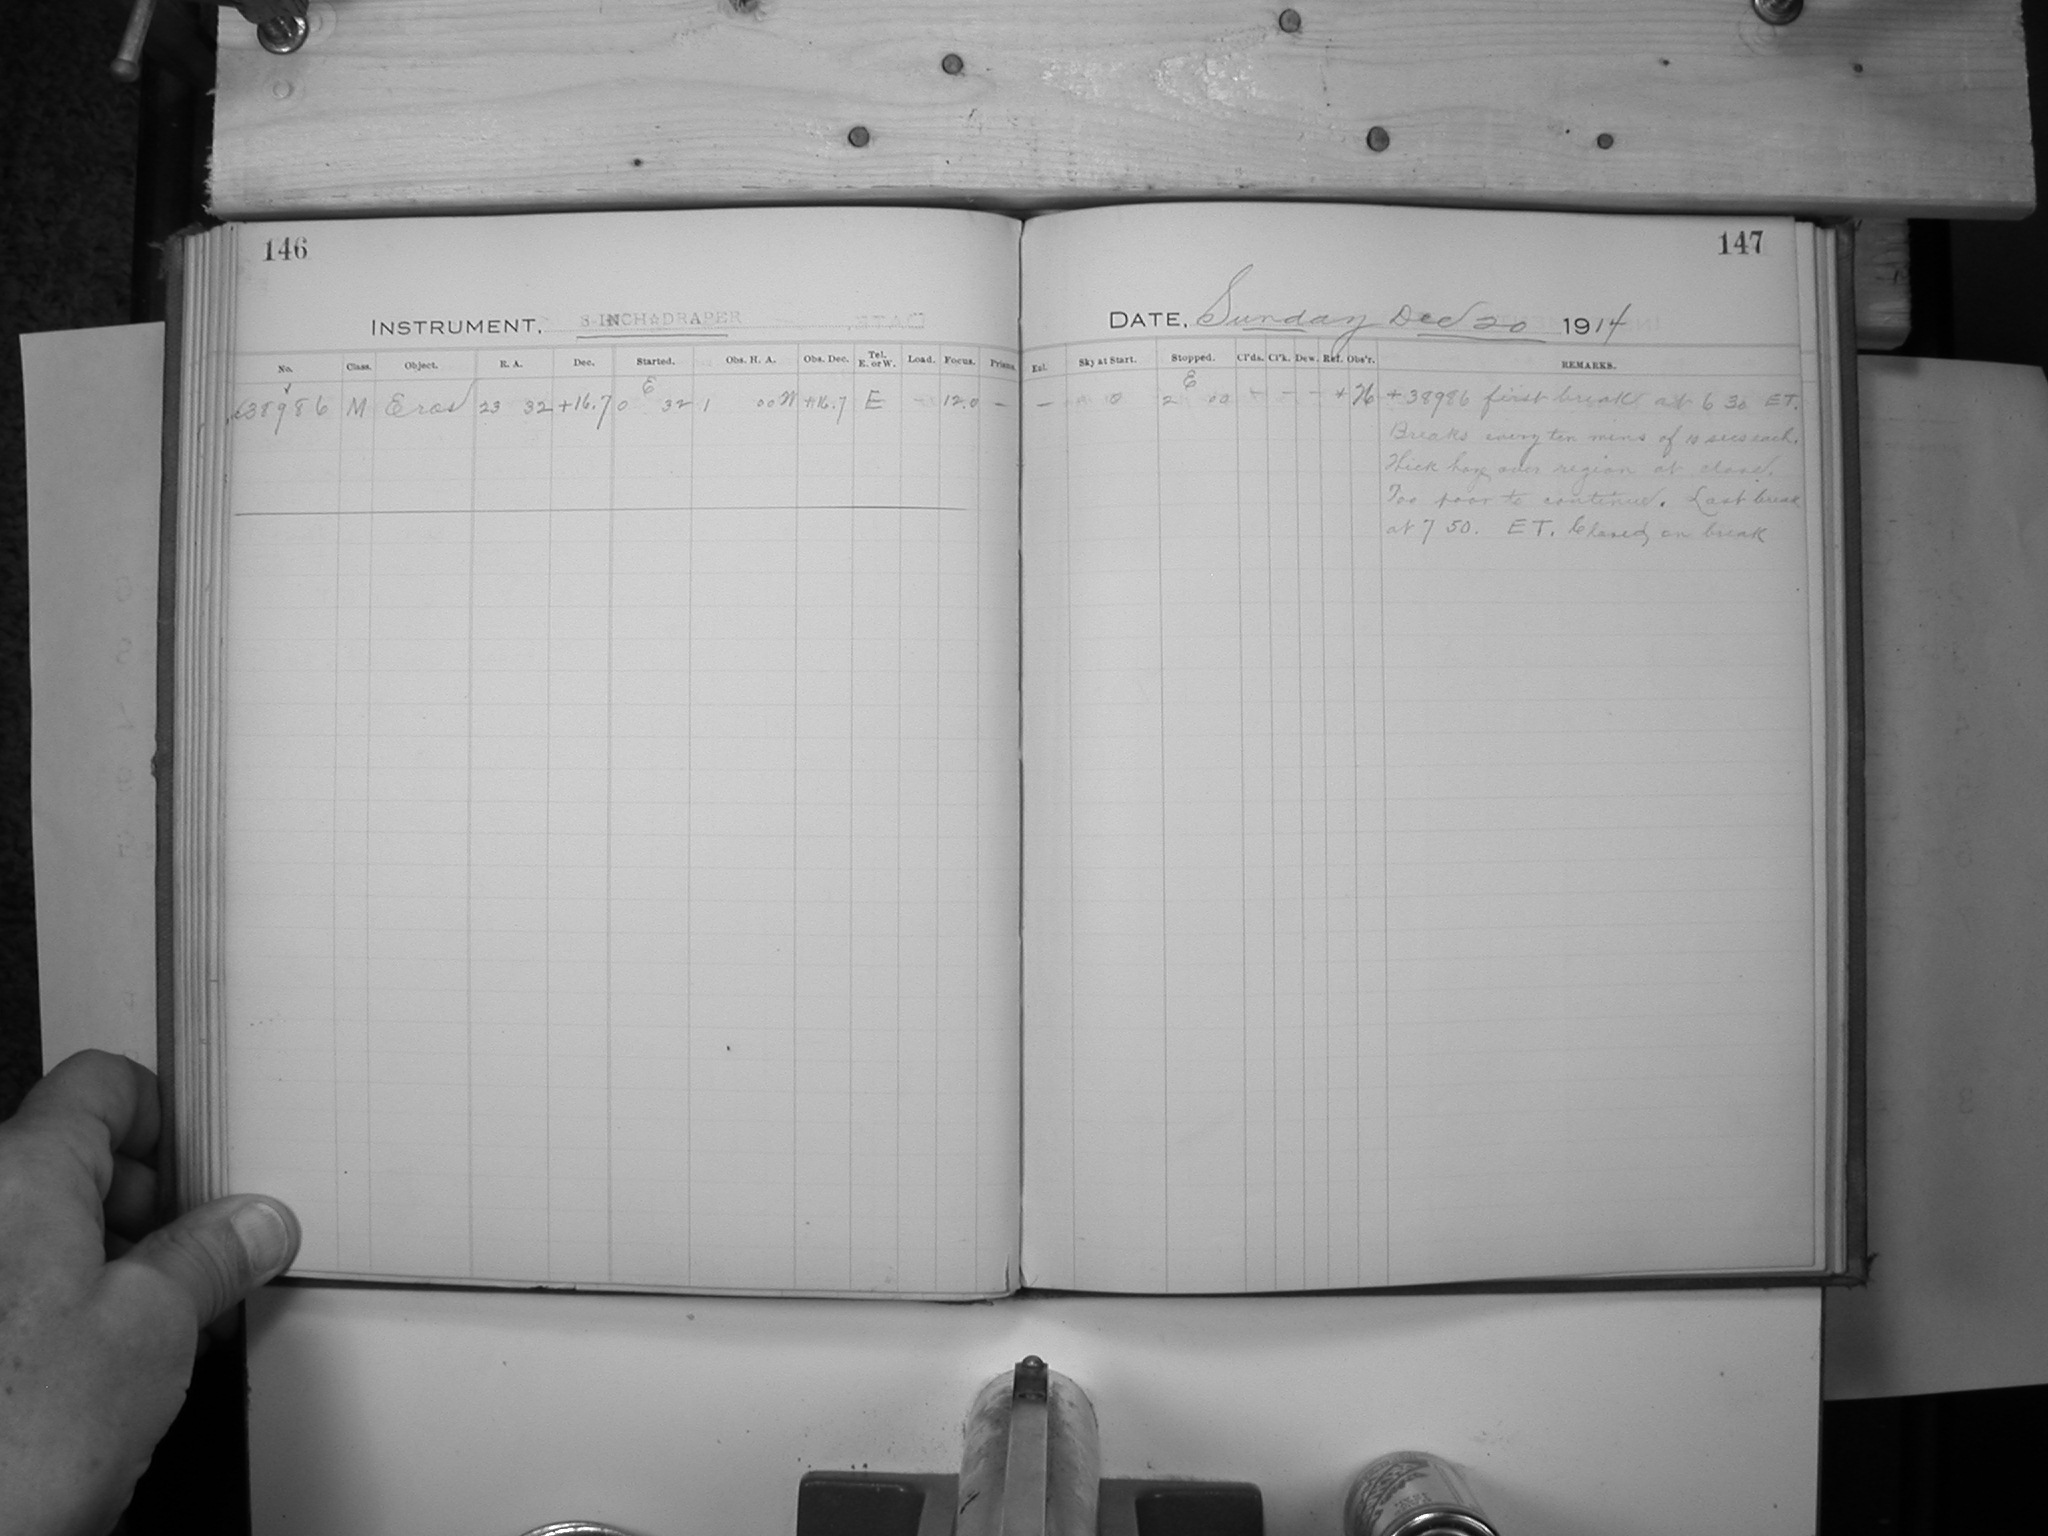 146
INSTRUMENT, 8-INCH DRAPER
No. Class. Object. R. A. Dec. Started. Obs. H. A. Obs. Dec. Tel. E. or W. Load. Focus. Prisms.
E
38986 M Eros 23 32 +16.7 0 32 1 00 W +16.7 E - 12.0 -
147
DATE, Sunday Dec 20 1914
Exl. Sky at Start. Stopped. Cl'ds. Cl'k. Dew. Ref. Obs'r. REMARKS.
E
- 2 00 + +38986 first break at 6 30 ET.
Breaks every ten mins of 10 secs each.
Thick haze over region at close.
Too poor to continue. Last break
at 7 50. ET. Closed on break